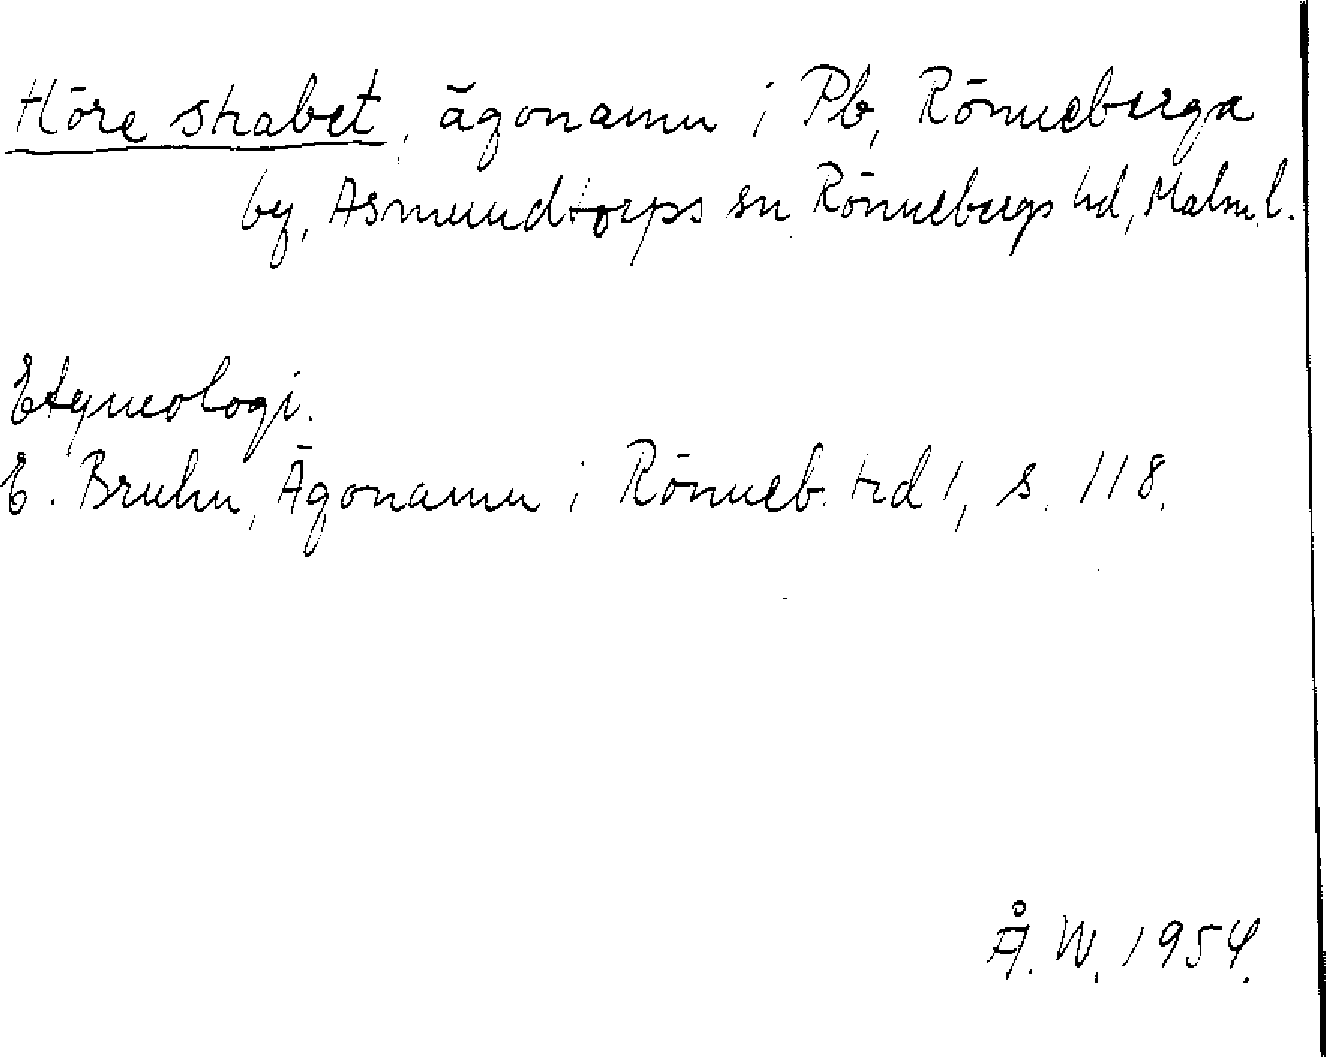 Höre skabet, ägonamn i Pb, Rönneberga
by, Asmundtorps sn Rönnebergs hd, Malm. l.
Etymologi.
E. Bruhn, Ägonamn i Rönneb. hd 1, s. 118.
Å. W. 1954.